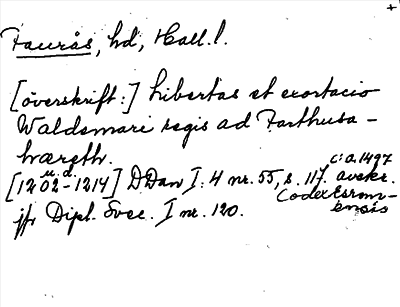 +
Faurås, hd, Hall. l.
[överskrift:] Libertas et exortacio
Waldemari regis ad Farthusa-
hæreth.
[1202 u.d. -1214] DDan I:4 nr. 55, s. 117. avskr. c:a 1497
Codex Esrom-
ensis
jfr Dipl. Svec. I nr. 120.